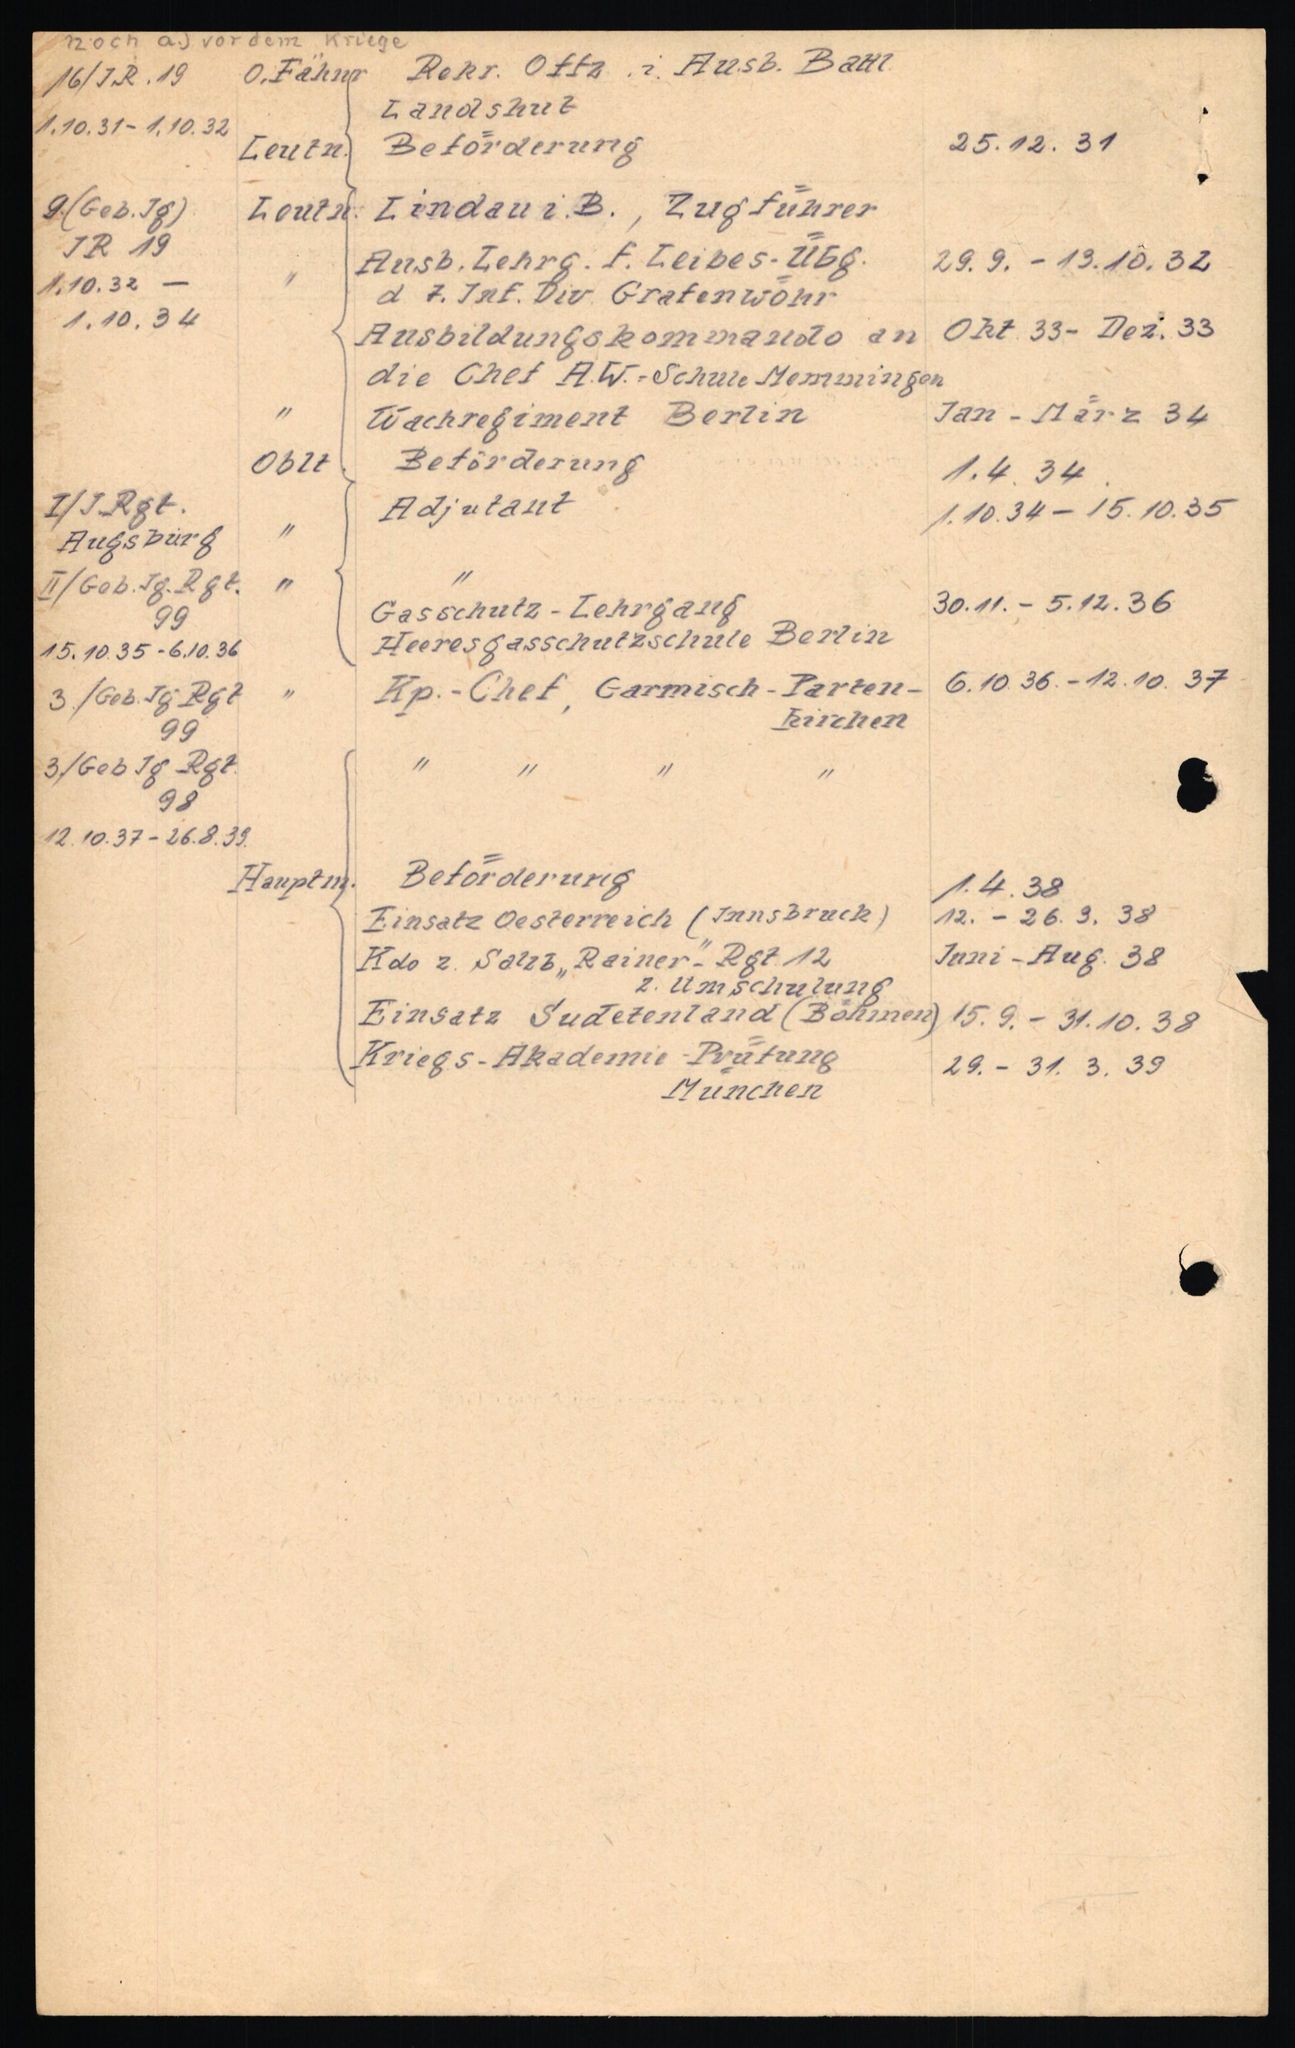 noch a) vor dem Kriege
16/I.R. 19 O.Fähnr Rekr. Offz. i. Ausb. Batl.
Landshut
1.10.31 - 1.10.32
Leutn. Beförderung 25.12.31
9.(Geb.Jg) Leutn. Lindau i.B., Zugführer
IR 19 Ausb. Lehrg. f. Leibes-Übg. 29.9. - 13.10.32
1.10.32 — " d 7. Inf. Div Grafenwöhr
1.10.34 Ausbildungskommando an Okt 33 - Dez. 33
die Chef A.W.-Schule Memmingen
" Wachregiment Berlin Jan - März 34
Oblt. Beförderung 1.4.34.
I/I.Rgt. Adjutant 1.10.34 - 15.10.35
Augsburg "
II/Geb.Jg.Rgt. " "
99 Gasschutz-Lehrgang 30.11. - 5.12.36
15.10.35 - 6.10.36 Heeresgasschutzschule Berlin
3./Geb.Jg Rgt " Kp.-Chef, Garmisch-Parten- 6.10.36. - 12.10.37
99 kirchen
3./Geb Jg Rgt. " " " "
98
12.10.37 - 26.8.39.
Hauptm. Beförderung 1.4.38
Einsatz Oesterreich (Innsbruck) 12. - 26.3.38
Kdo z. Salzb „Rainer"- Rgt. 12 Juni - Aug. 38
z. Umschulung
Einsatz Sudetenland (Böhmen) 15.9. - 31.10.38
Kriegs-Akademie-Prüfung 29. - 31.3.39
München